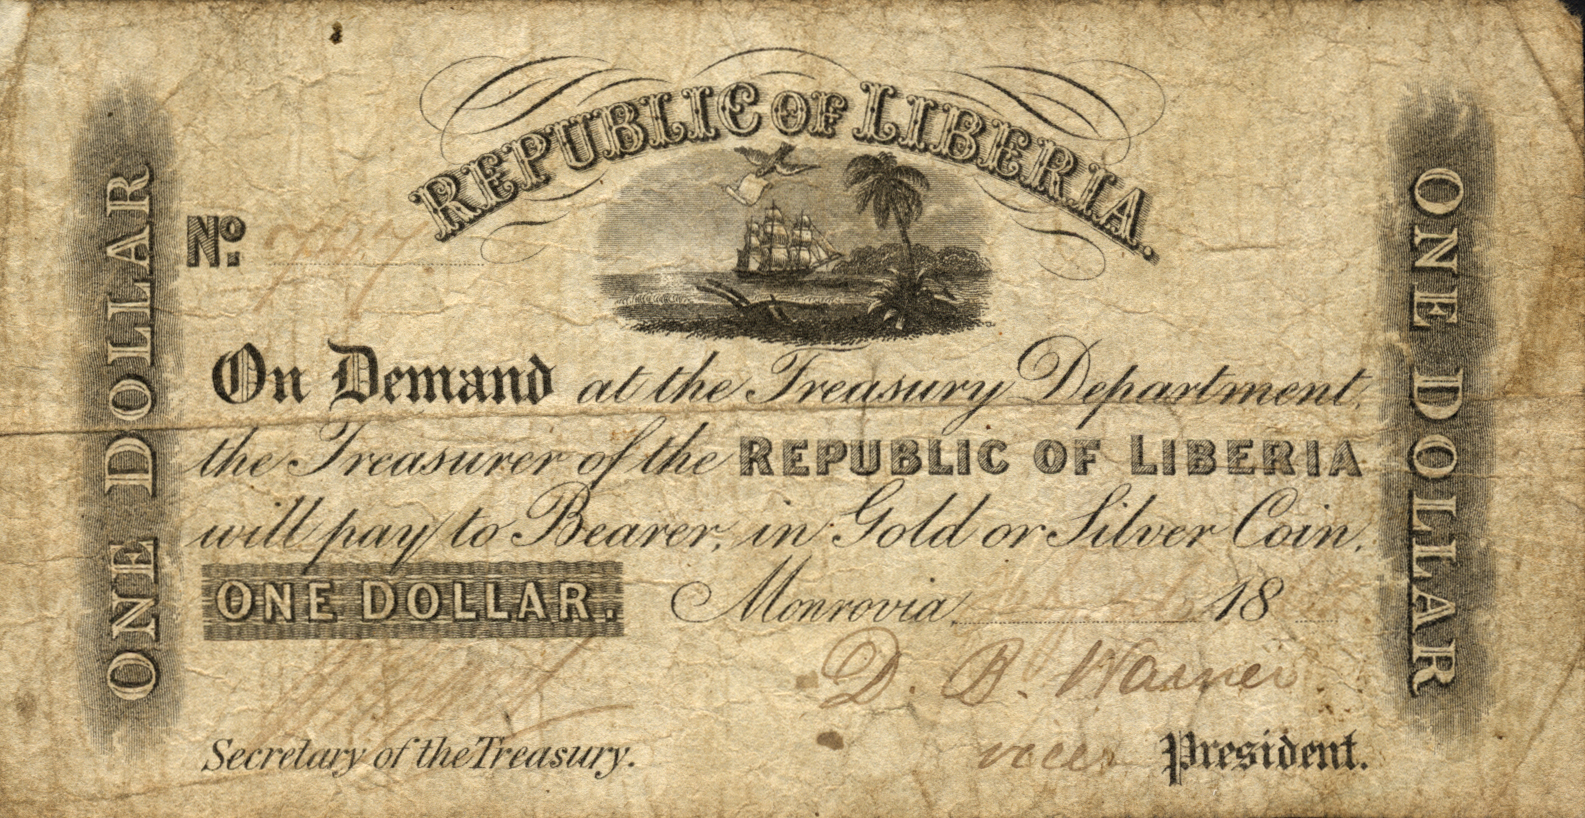 REPUBLIC OF LIBERIA.
ONE DOLLAR
ONE DOLLAR
No.
On Demand at the Treasury Department,
the Treasurer of the REPUBLIC OF LIBERIA
will pay to Bearer, in Gold or Silver Coin,
ONE DOLLAR. Monrovia, 18
D. B. Warner
Secretary of the Treasury. vice President.